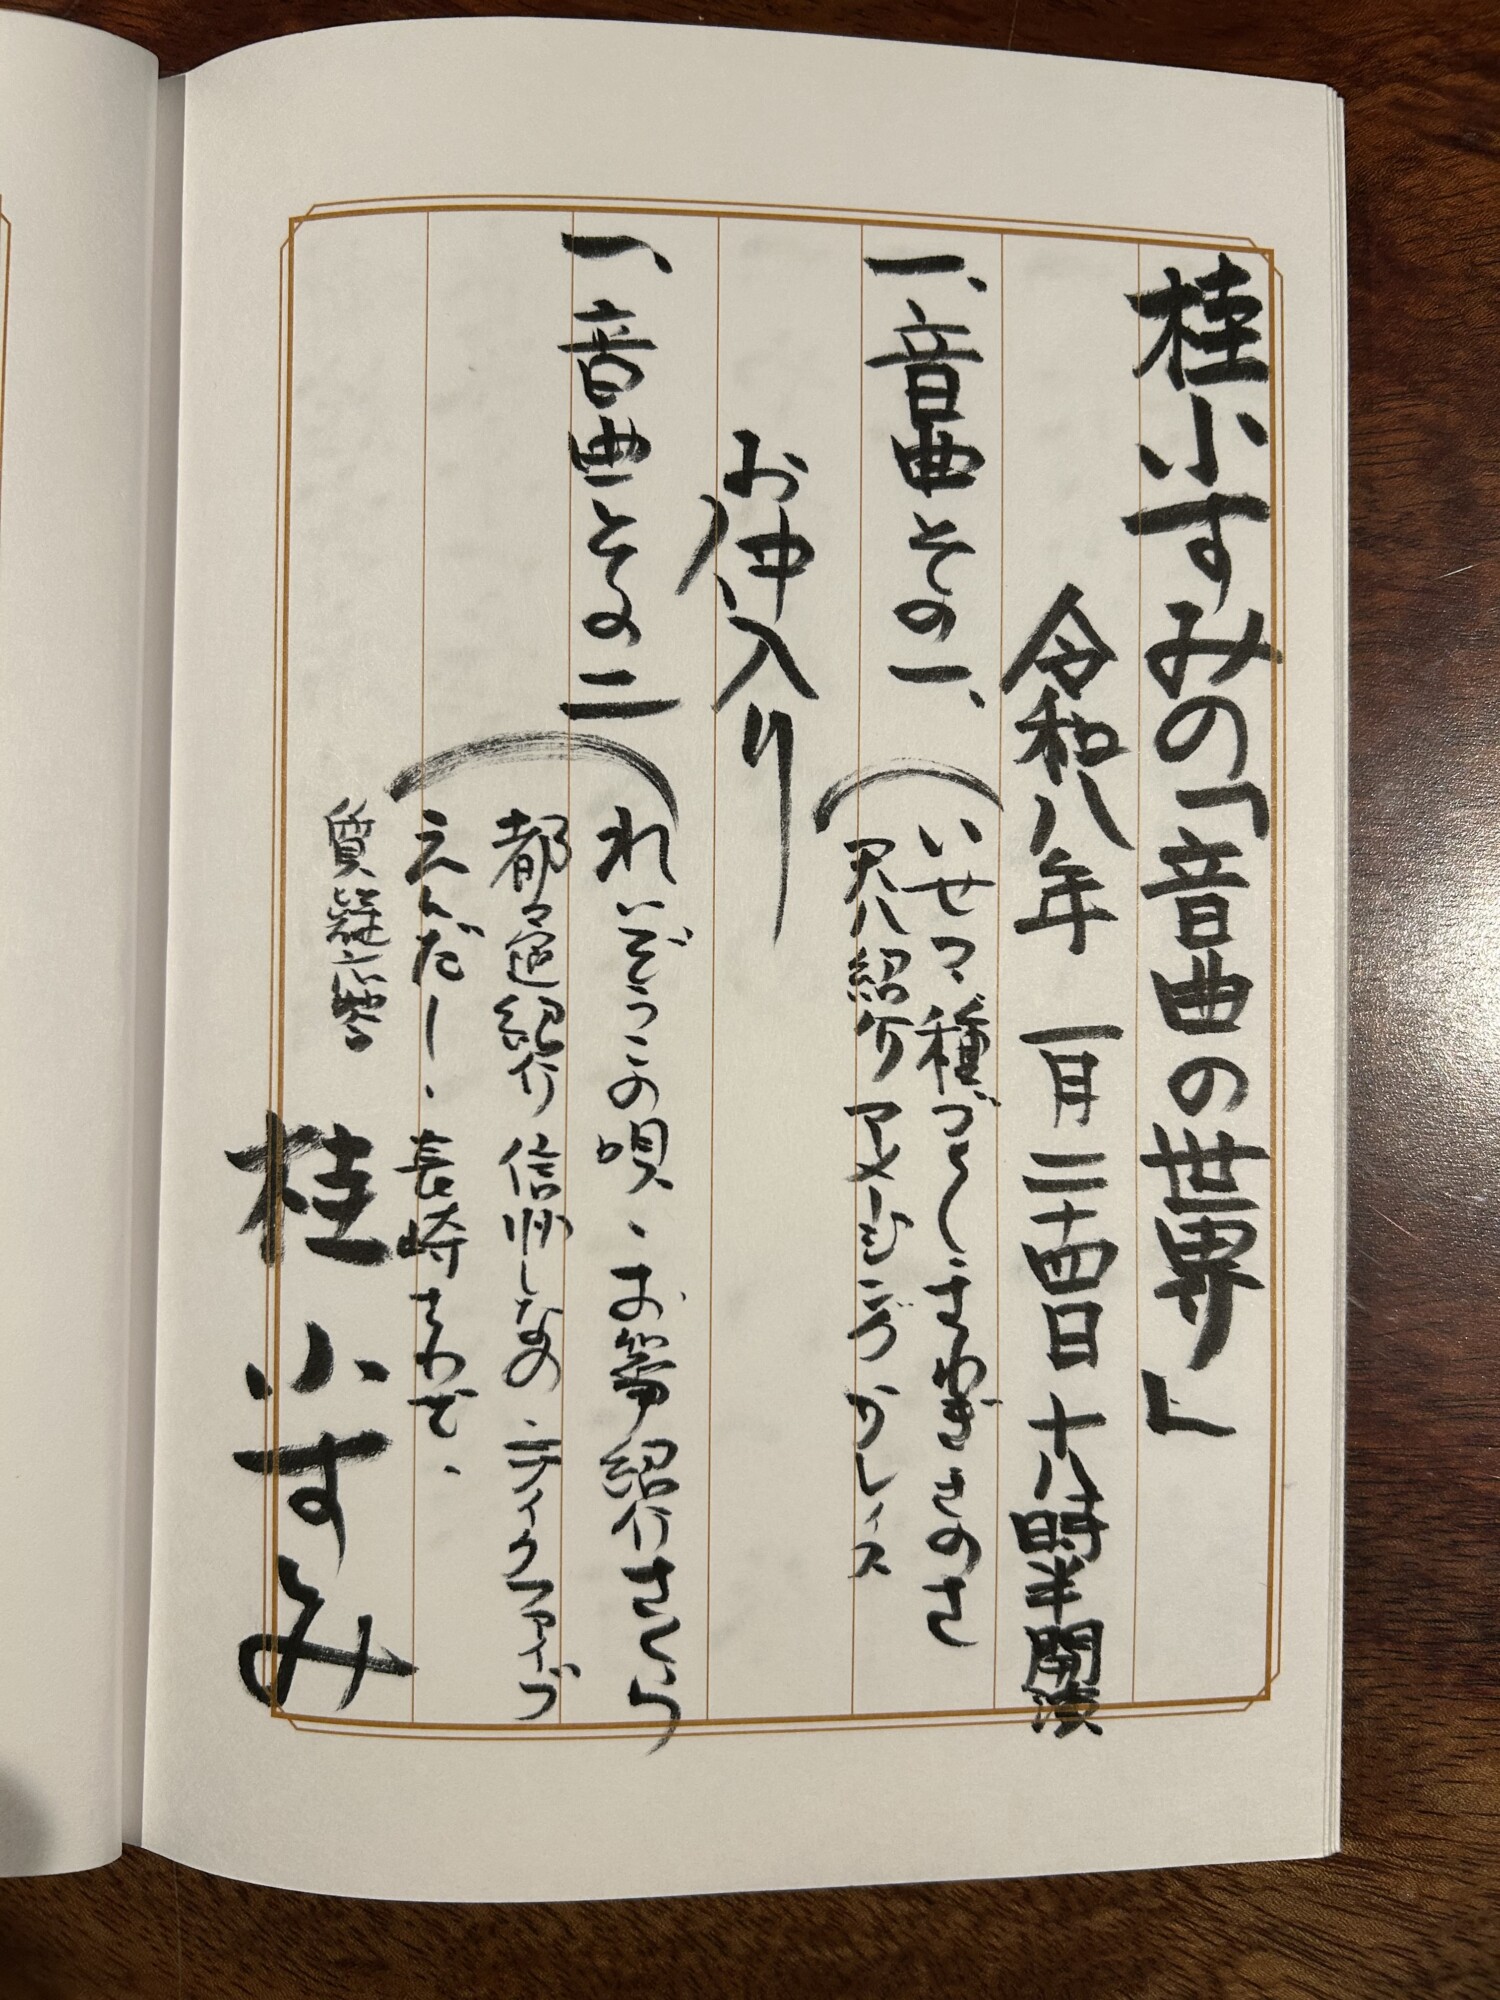 桂小すみの「音曲の世界」
令和八年 一月二十四日 十八時半開演
一、音曲その一、
いせマ、種づくし、さわぎ さのさ
尺八紹介 アメージンググレイス
お仲入り
一、音曲その二
れいぞうこの唄、お箏紹介 さくら
都々逸紹介 信州しなの、テイクファイブ
えんだー、長崎さわぎ、
質疑応答
桂 小すみ